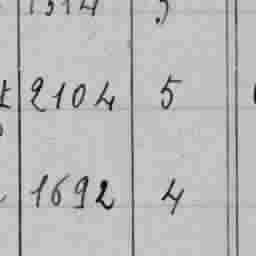 2104 5
1692 4